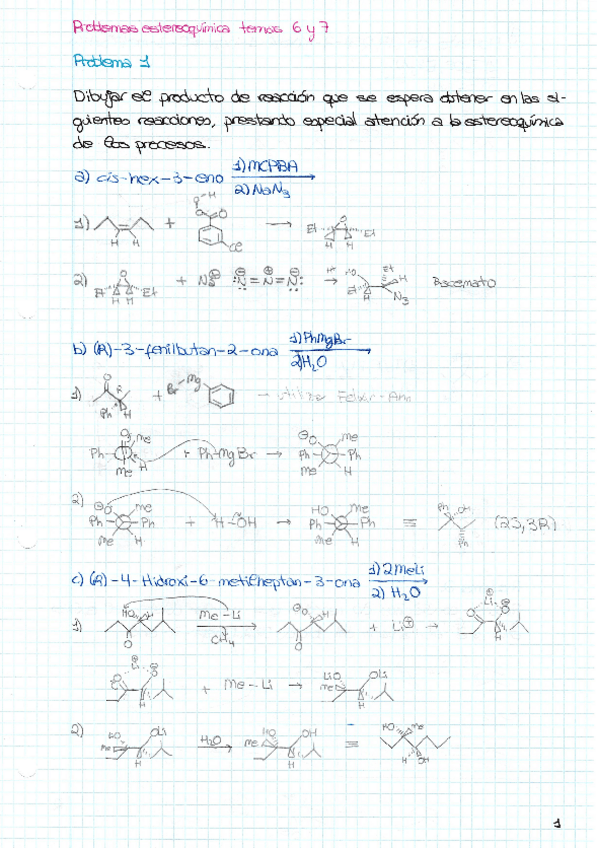 Problemas estereoquímica temas 6 y 7
Problema 1
Dibujar el producto de reacción que se espera obtener en las si-
guientes reacciones, prestando especial atención a la estereoquímica
de los procesos.
a) cis-hex-3-eno 1) MCPBA
2) NaN3
1) H H + O H O O Cl Et O Et H H
2) Et O Et H H + Na⊕ ⊖N=N⊕=N⊖ HO Et H Et H N3 Racemato
b) (R)-3-fenilbutan-2-ona 1) PhMgBr
2) H2O
1) O Ph H + Br Mg utiliza Felkin-Anh
Ph O Me Me H + Ph-MgBr → ⊖O Me Ph Ph Me H
2) ⊖O Me Ph Ph Me H + H-OH → HO Me Ph Ph Me H ≡ Ph OH Ph (2S,3R)
c) (R)-4-Hidroxi-6-metilheptan-3-ona 1) 2MeLi
2) H2O
1) HO H O Me-Li CH4 ⊖O H O + Li⊕ → Li O O H
Li O O H + Me-Li → LiO Me OLi H
2) LiO Me OLi H H2O HO Me OH H ≡ HO Me H OH
1